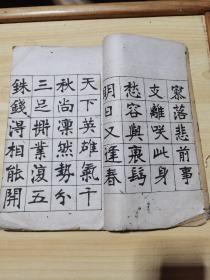 寥落悲前事
支離咲此身
愁容與衰鬂
明日又逢春
天下英雄氣千
秋尚凛然勢分
三足鼎業復五
銖錢得相能開